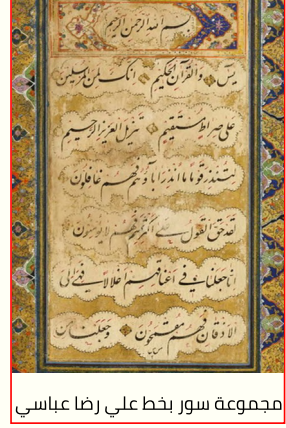 بسم الله الرحمن الرحيم
يس والقرآن الحكيم انك لمن المرسلين
على صراط مستقيم تنزيل العزيز الرحيم
لتنذر قوما ما انذر اباؤهم فهم غافلون
لقد حق القول على اكثرهم فهم لا يؤمنون
انا جعلنا في اعناقهم اغلالا فهي الى
الاذقان فهم مقمحون وجعلنا من
مجموعة سور بخط علي رضا عباسي